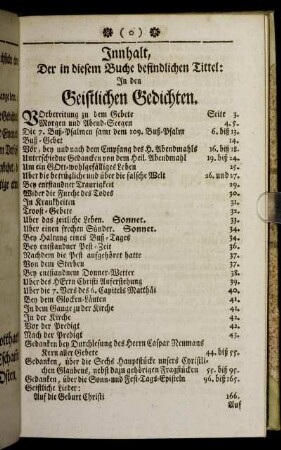 ( o )
Innhalt,
Der in diesem Buche befindlichen Tittel:
In den
Geistlichen Gedichten.
Vorbereitung zu dem Gebete Seite 3.
Morgen und Abend-Seegen 4. 5.
Die 7. Buß-Psalmen samt dem 109. Buß-Psalm 6. biß 13.
Buß-Gebet 14.
Vor, bey und nach dem Empfang des H. Abendmahls 16. biß 18.
Unterschiedne Gedancken von dem Heil. Abendmahl 19. biß 24.
Um ein GOtt-wohlgefälliges Leben 25.
Uber die betrügliche und über die falsche Welt 26. und 27.
Bey entstandner Traurigkeit 29.
Wider die Furche des Todes 30.
In Kranckheiten 31.
Troost-Gebete 32.
Uber das zeitliche Leben. Sonnet. 33.
Uber einen frechen Sünder. Sonnet. 34.
Bey Haltung eines Buß-Tages 34.
Bey entstandner Pest-Zeit 36.
Nachdem die Pest aufgehöret hatte 37.
Von dem Sterben 37.
Bey entstandnem Donner-Wetter 38.
Uber des HErrn Christi Auferstehung 39.
Uber die 7. Vers des 6. Capitels Matthäi 40.
Bey dem Glocken-Läuten 41.
In dem Gange zu der Kirche 41.
In der Kirche 42.
Vor der Predigt 42.
Nach der Predigt 43.
Gedancken bey Durchlesung des Herrn Caspar Neumans
Kern aller Gebete 44. biß 55.
Gedancken, über die Sechs Hauptstücke unsers Christli-
chen Glaubens, nebst dazu gehörigen Fragstücken 55. biß 95.
Gedancken, über die Sonn-und Fest-Tags-Episteln 96. biß 165.
Geistliche Lieder:
Auf die Geburt Christi 166.
Auf